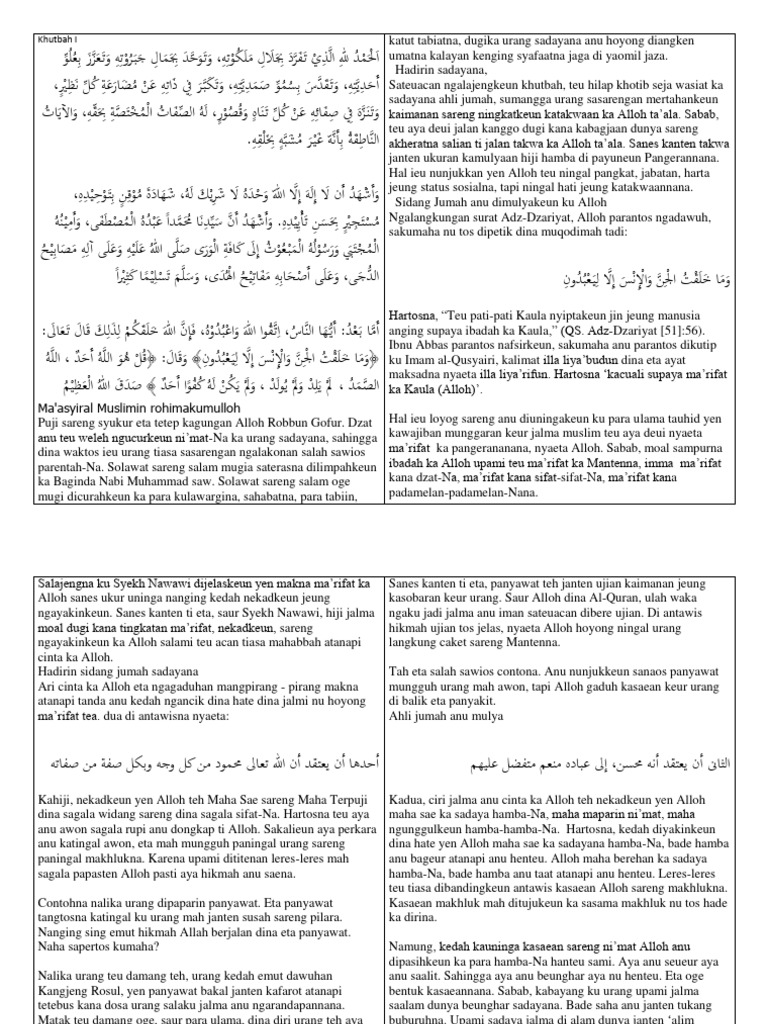 Khutbah I
اَلْحَمْدُ للهِ الَّذِيْ تَفَرَّدَ بِجَلَالِ مَلَكُوْتِهِ، وَتَوَحَّدَ بِجَمَالِ جَبَرُوْتِهِ وَتَعَزَّزَ بِعُلُوِّ
أَحَدِيَّتِهِ، وَتَقَدَّسَ بِسُمُوِّ صَمَدِيَّتِهِ، وَتَكَبَّرَ فِي ذَاتِهِ عَنْ مُضَارَعَةِ كُلِّ نَظِيْرٍ،
وَتَنَزَّهَ فِي صِفَائِهِ عَنْ كُلِّ تَنَادٍ وَقُصُوْرٍ، لَهُ الصِّفَاتُ الْمُخْتَصَّةُ بِحَقِّهِ، وَالآيَاتُ
النَّاطِقَةُ بِأَنَّهُ غَيْرُ مُشَبَّهٍ بِخَلْقِهِ.
وَأَشْهَدُ أَن لَا إِلَهَ إِلَّا اللهَ وَحْدَهُ لَا شَرِيْكَ لَهُ، شَهَادَةَ مُوْقِنٍ بِتَوْحِيْدِهِ،
مُسْتَجِيْرٍ بِحَسَنِ تَأْيِيْدِهِ. وَأَشْهَدُ أَنَّ سَيِّدِنَا مُحَمَّداً عَبْدُهُ الْمُصْطَفَى، وَأَمِيْنُهُ
الْمُجْتَبَى وَرَسُوْلُهُ الْمَبْعُوْثُ إِلَى كَافَةِ الْوَرَى صَلَّى اللهُ عَلَيْهِ وَعَلَى آلِهِ مَصَابِيْحِ
الدُّجَى، وَعَلَى أَصْحَابِهِ مَفَاتِيْحِ الْهُدَى، وَسَلَّمَ تَسْلِيْمًا كَثِيْرًا
أَمَّا بَعْدُ: أَيُّهَا النَّاسُ، اِتَّقُوا اللهَ وَاعْبُدُوْهُ، فَإِنَّ اللهَ خَلَقَكُمْ لِذَلِكَ قَالَ تَعَالَى:
﴿وَمَا خَلَقْتُ الْجِنَّ وَالْإِنْسَ إِلَّا لِيَعْبُدُوْنِ﴾ وَقَالَ: ﴿قُلْ هُوَ اللَّهُ أَحَدٌ ، اللَّهُ
الصَّمَدُ ، لَمْ يَلِدْ وَلَمْ يُولَدْ ، وَلَمْ يَكُنْ لَهُ كُفُوًا أَحَدٌ ﴾ صَدَقَ اللهُ الْعَظِيْمُ
Ma'asyiral Muslimin rohimakumulloh
Puji sareng syukur eta tetep kagungan Alloh Robbun Gofur. Dzat
anu teu weleh ngucurkeun ni’mat-Na ka urang sadayana, sahingga
dina waktos ieu urang tiasa sasarengan ngalakonan salah sawios
parentah-Na. Solawat sareng salam mugia saterasna dilimpahkeun
ka Baginda Nabi Muhammad saw. Solawat sareng salam oge
mugi dicurahkeun ka para kulawargina, sahabatna, para tabiin,
katut tabiatna, dugika urang sadayana anu hoyong diangken
umatna kalayan kenging syafaatna jaga di yaomil jaza.
Hadirin sadayana,
Sateuacan ngalajengkeun khutbah, teu hilap khotib seja wasiat ka
sadayana ahli jumah, sumangga urang sasarengan mertahankeun
kaimanan sareng ningkatkeun katakwaan ka Alloh ta’ala. Sabab,
teu aya deui jalan kanggo dugi kana kabagjaan dunya sareng
akheratna salian ti jalan takwa ka Alloh ta’ala. Sanes kanten takwa
janten ukuran kamulyaan hiji hamba di payuneun Pangerannana.
Hal ieu nunjukkan yen Alloh teu ningal pangkat, jabatan, harta
jeung status sosialna, tapi ningal hati jeung katakwaannana.
Sidang Jumah anu dimulyakeun ku Alloh
Ngalangkungan surat Adz-Dzariyat, Alloh parantos ngadawuh,
sakumaha nu tos dipetik dina muqodimah tadi:
وَمَا خَلَقْتُ الْجِنَّ وَالْإِنْسَ إِلَّا لِيَعْبُدُونِ
Hartosna, “Teu pati-pati Kaula nyiptakeun jin jeung manusia
anging supaya ibadah ka Kaula,” (QS. Adz-Dzariyat [51]:56).
Ibnu Abbas parantos nafsirkeun, sakumaha anu parantos dikutip
ku Imam al-Qusyairi, kalimat illa liya’budun dina eta ayat
maksadna nyaeta illa liya’rifun. Hartosna ‘kacuali supaya ma’rifat
ka Kaula (Alloh)’.
Hal ieu loyog sareng anu diuningakeun ku para ulama tauhid yen
kawajiban munggaran keur jalma muslim teu aya deui nyaeta
ma’rifat ka pangerananana, nyaeta Alloh. Sabab, moal sampurna
ibadah ka Alloh upami teu ma’rifat ka Mantenna, imma ma’rifat
kana dzat-Na, ma’rifat kana sifat-sifat-Na, ma’rifat kana
padamelan-padamelan-Nana.
Salajengna ku Syekh Nawawi dijelaskeun yen makna ma’rifat ka
Alloh sanes ukur uninga nanging kedah nekadkeun jeung
ngayakinkeun. Sanes kanten ti eta, saur Syekh Nawawi, hiji jalma
moal dugi kana tingkatan ma’rifat, nekadkeun, sareng
ngayakinkeun ka Alloh salami teu acan tiasa mahabbah atanapi
cinta ka Alloh.
Hadirin sidang jumah sadayana
Ari cinta ka Alloh eta ngagaduhan mangpirang - pirang makna
atanapi tanda anu kedah ngancik dina hate dina jalmi nu hoyong
ma’rifat tea. dua di antawisna nyaeta:
أحدها أن يعتقد أن الله تعالى محمود من كل وجه وبكل صفة من صفاته
Kahiji, nekadkeun yen Alloh teh Maha Sae sareng Maha Terpuji
dina sagala widang sareng dina sagala sifat-Na. Hartosna teu aya
anu awon sagala rupi anu dongkap ti Alloh. Sakalieun aya perkara
anu katingal awon, eta mah mungguh paningal urang sareng
paningal makhlukna. Karena upami dititenan leres-leres mah
sagala papasten Alloh pasti aya hikmah anu saena.
Contohna nalika urang dipaparin panyawat. Eta panyawat
tangtosna katingal ku urang mah janten susah sareng pilara.
Nanging sing emut hikmah Allah berjalan dina eta panyawat.
Naha sapertos kumaha?
Nalika urang teu damang teh, urang kedah emut dawuhan
Kangjeng Rosul, yen panyawat bakal janten kafarot atanapi
tetebus kana dosa urang salaku jalma anu ngarandapannana.
Matak teu damang oge, saur para ulama, dina diri urang teh aya
Sanes kanten ti eta, panyawat teh janten ujian kaimanan jeung
kasobaran keur urang. Saur Alloh dina Al-Quran, ulah waka
ngaku jadi jalma anu iman sateuacan dibere ujian. Di antawis
hikmah ujian tos jelas, nyaeta Alloh hoyong ningal urang
langkung caket sareng Mantenna.
Tah eta salah sawios contona. Anu nunjukkeun sanaos panyawat
mungguh urang mah awon, tapi Alloh gaduh kasaean keur urang
di balik eta panyakit.
Ahli jumah anu mulya
الثانى أن يعتقد أنه محسن، إلى عباده منعم متفضل عليهم
Kadua, ciri jalma anu cinta ka Alloh teh nekadkeun yen Alloh
maha sae ka sadaya hamba-Na, maha maparin ni’mat, maha
ngunggulkeun hamba-hamba-Na. Hartosna, kedah diyakinkeun
dina hate yen Alloh maha sae ka sadayana hamba-Na, bade hamba
anu bageur atanapi anu henteu. Alloh maha berehan ka sadaya
hamba-Na, bade hamba anu taat atanapi anu henteu. Leres-leres
teu tiasa dibandingkeun antawis kasaean Alloh sareng makhlukna.
Kasaean makhluk mah ditujukeun ka sasama makhluk nu tos hade
ka dirina.
Namung, kedah kauninga kasaean sareng ni’mat Alloh anu
dipasihkeun ka para hamba-Na hanteu sami. Aya anu seueur aya
anu saalit. Sahingga aya anu beunghar aya nu henteu. Eta oge
bentuk kasaeannana. Sabab, kabayang ku urang upami jalma
saalam dunya beunghar sadayana. Bade saha anu janten tukang
buburuhna. Upami sadaya jalma di alam dunya janten ‘alim